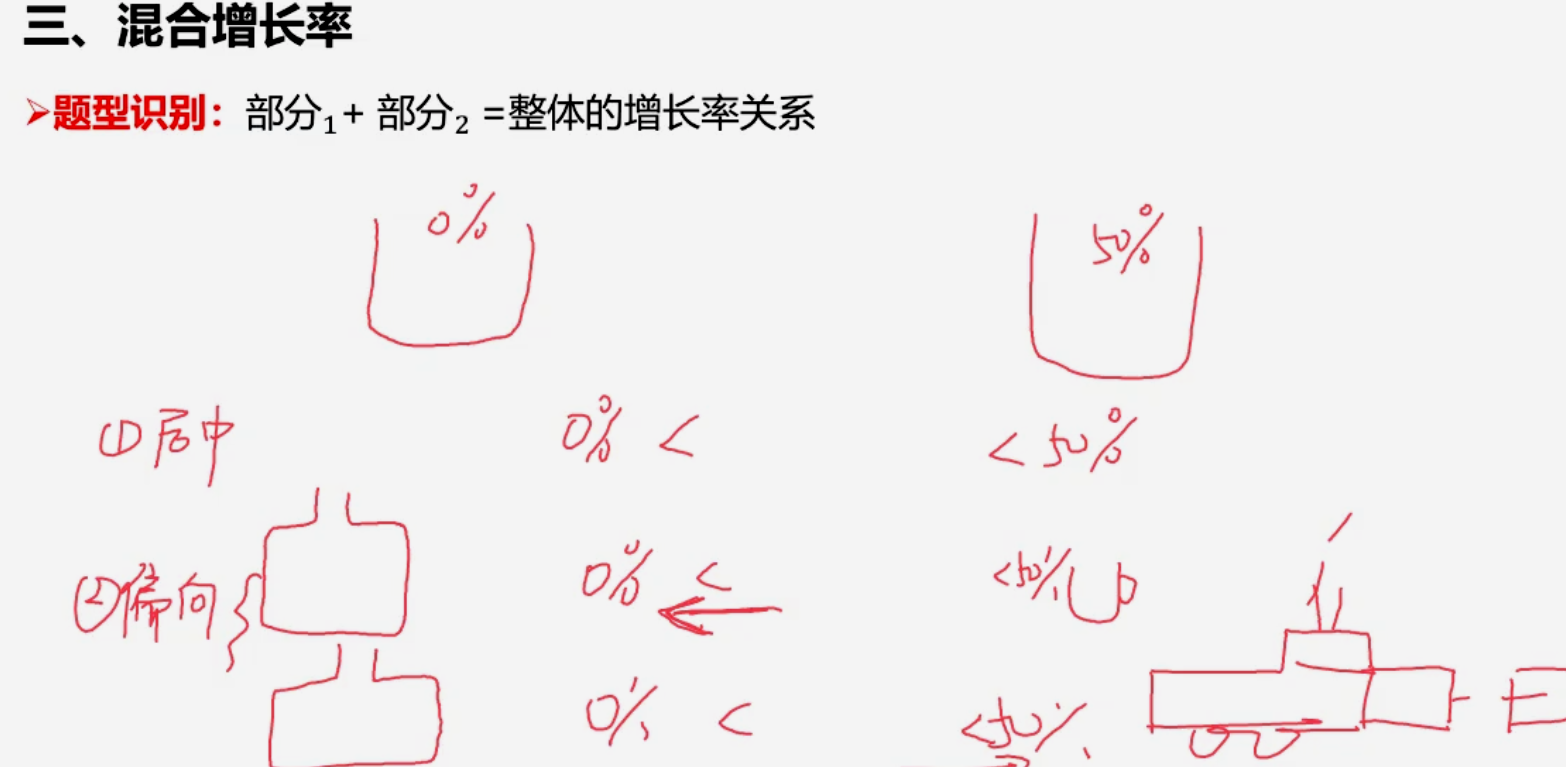 三、混合增长率
➢题型识别：部分₁+ 部分₂ =整体的增长率关系
0% 50%
①居中 0% < < 50%
②偏向 0% < <50%
0% < <50%